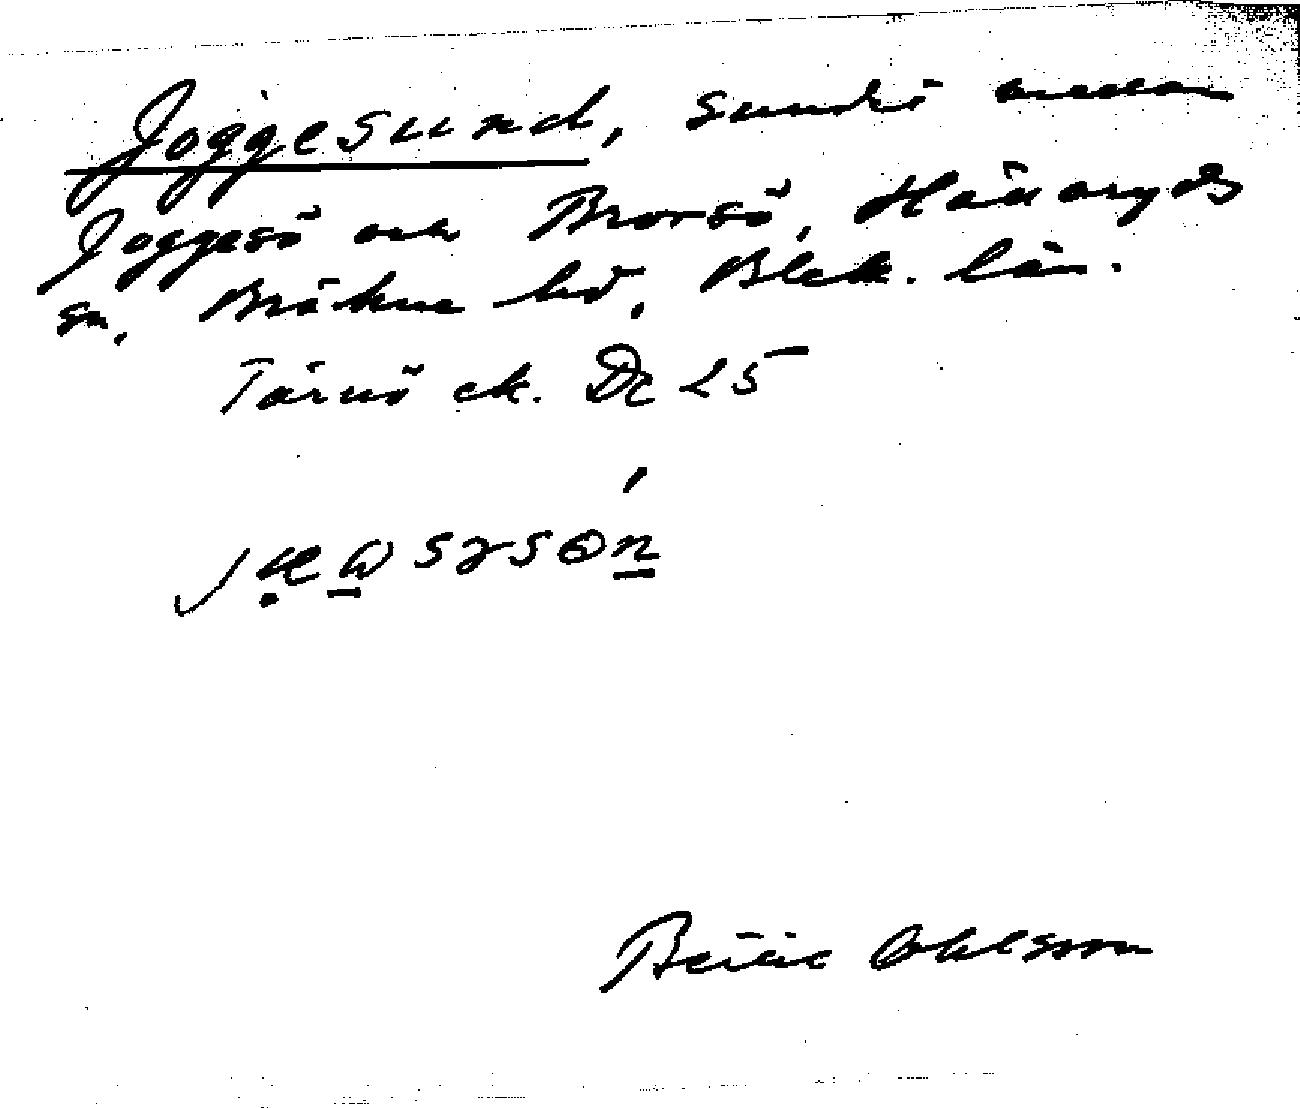 Joggesund, sundet mellan
Joggesö och Brorsö, Hällaryds
sn. Bräkne hd, Blek. län.
Tärnö ek. Dc 25
Bertil Ohlsson